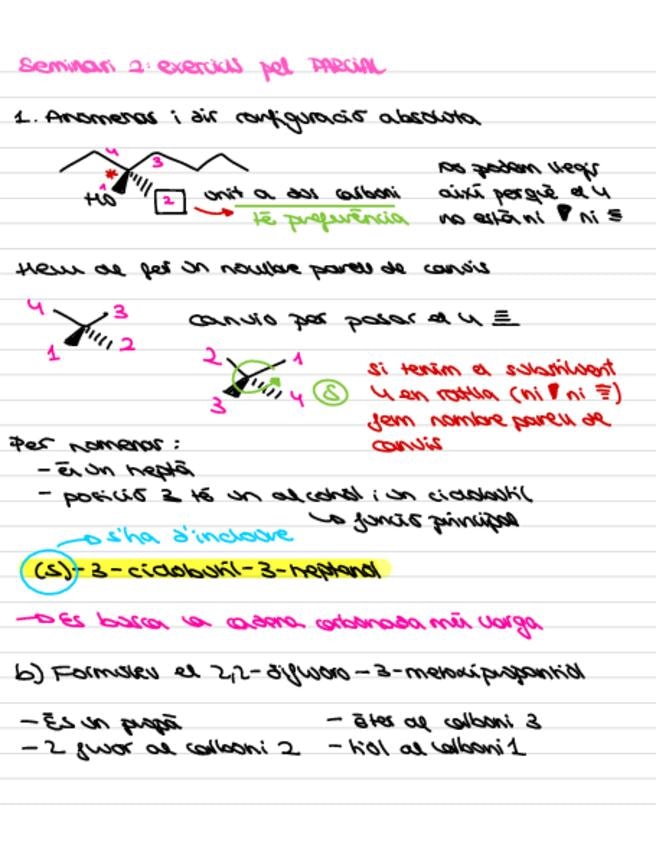 Seminari 2: exercicis pel PARCIAL
1. Anomenar i dir configuració absoluta
4
3
*
1
HO
2
unit a dos carboni
té preferència
no podem llegir
així perquè el 4
no està ni ni
Hem de fer un nombre parell de canvis
4
3
1
2
canvio per posar el 4
2
1
3
4
S
si tenim el substituent
4 en ratlla (ni ni )
fem nombre parell de
canvis
Per nomenar:
- és un heptà
- posició 3 té un alcohol i un ciclobutil
funció principal
s'ha d'incloure
(S)-3-ciclobutil-3-heptanol
Es busca la cadena carbonada més llarga
b) Formuleu el 2,2-difluoro-3-metoxipropantiol
- És un propà
- èter al carboni 3
- 2 fluor al carboni 2
- tiol al carboni 1